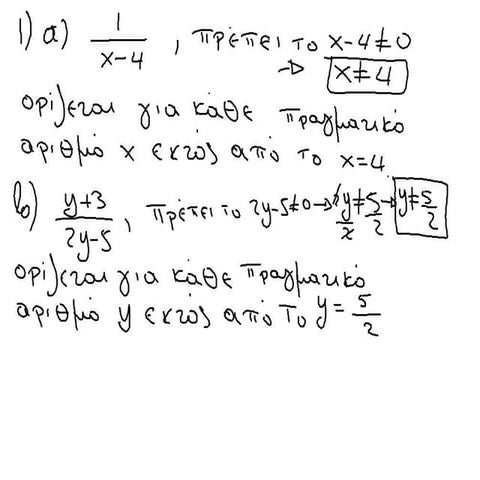 1) α) 1/(x-4) , πρέπει το x-4≠0
→ x≠4
ορίζεται για κάθε πραγματικό
αριθμό x εκτός από το x=4
b) (y+3)/(2y-5) , πρέπει το 2y-5≠0 → 2y/2≠5/2 → y≠5/2
ορίζεται για κάθε πραγματικό
αριθμό y εκτός από το y=5/2